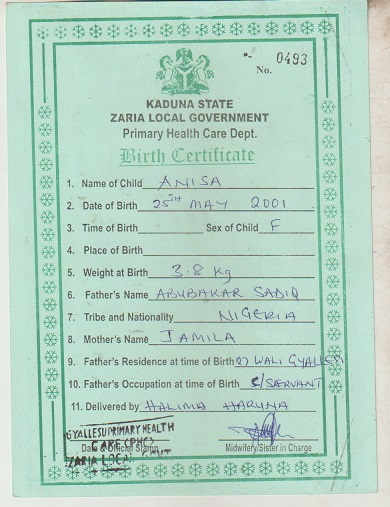 No. 0493
KADUNA STATE
ZARIA LOCAL GOVERNMENT
Primary Health Care Dept.
Birth Certificate
1. Name of Child ANISA
2. Date of Birth 25TH MAY 2001
3. Time of Birth Sex of Child F
4. Place of Birth
5. Weight at Birth 3.8 Kg
6. Father's Name ABUBAKAR SADIQ
7. Tribe and Nationality NIGERIA
8. Mother's Name JAMILA
9. Father's Residence at time of Birth 27 WALI GYALLESU
10. Father's Occupation at time of Birth C/SERVANT
11. Delivered by HALIMA HARUNA
GYALLESU PRIMARY HEALTH
CARE (PHC)
Date & Official Stamp Midwifery/Sister in Charge
ZARIA LOCAL